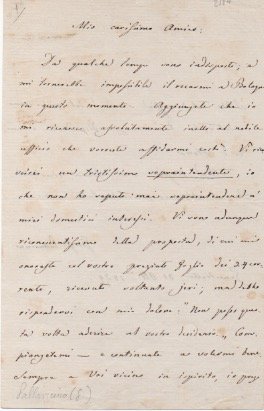 Mio carissimo Amico:
Da qualche tempo sono indisposto, e
mi tornerebbe impossibile il recarmi a Bologna
in questo momento. Aggiungete che io
mi riconosco assolutamente inetto al nobile
ufficio che vorreste affidarmi costì. Vi
un tristissimo sopraintendente, io
che non ho saputo mai sopraintendere a'
miei domestici interessi. Vi sono adunque
riconoscentissimo della proposta, di cui mi
onoraste col vostro pregiato foglio dei 24 cor-
rente, ricevuto soltanto jeri; ma debbo
rispondervi con mio dolore: "Non posso ques-
ta volta aderire al vostro desiderio." Com-
piangetemi — e continuate a volermi bene.
Sempre a Voi vicino in ispirito, io